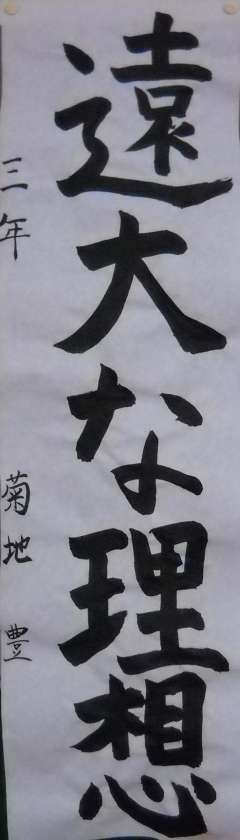 遠大な理想
三年 菊地 豊